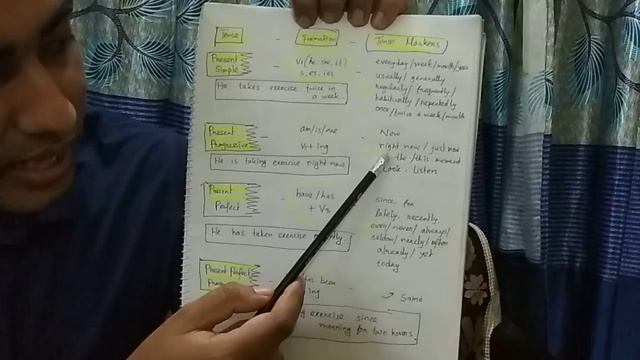 Tense - Formation - Tense Markers
Present Simple - V1 (he, she, it) s, es, ies - everyday/week/month/year
usually / generally
regularly / frequently /
habitually / repeatedly
once/twice a week/month
He takes exercise twice in a week.
Present Progressive - am/is/are V1+ing - Now
right now / just now
the / this moment
Look, Listen
He is taking exercise right now
Present Perfect - have/has + V3 - since, for
lately, recently
ever/never/always/
seldom/rarely/often
already/yet
today
He has taken exercise
Present Perfect - been - Same
exercise since
morning for two hours.